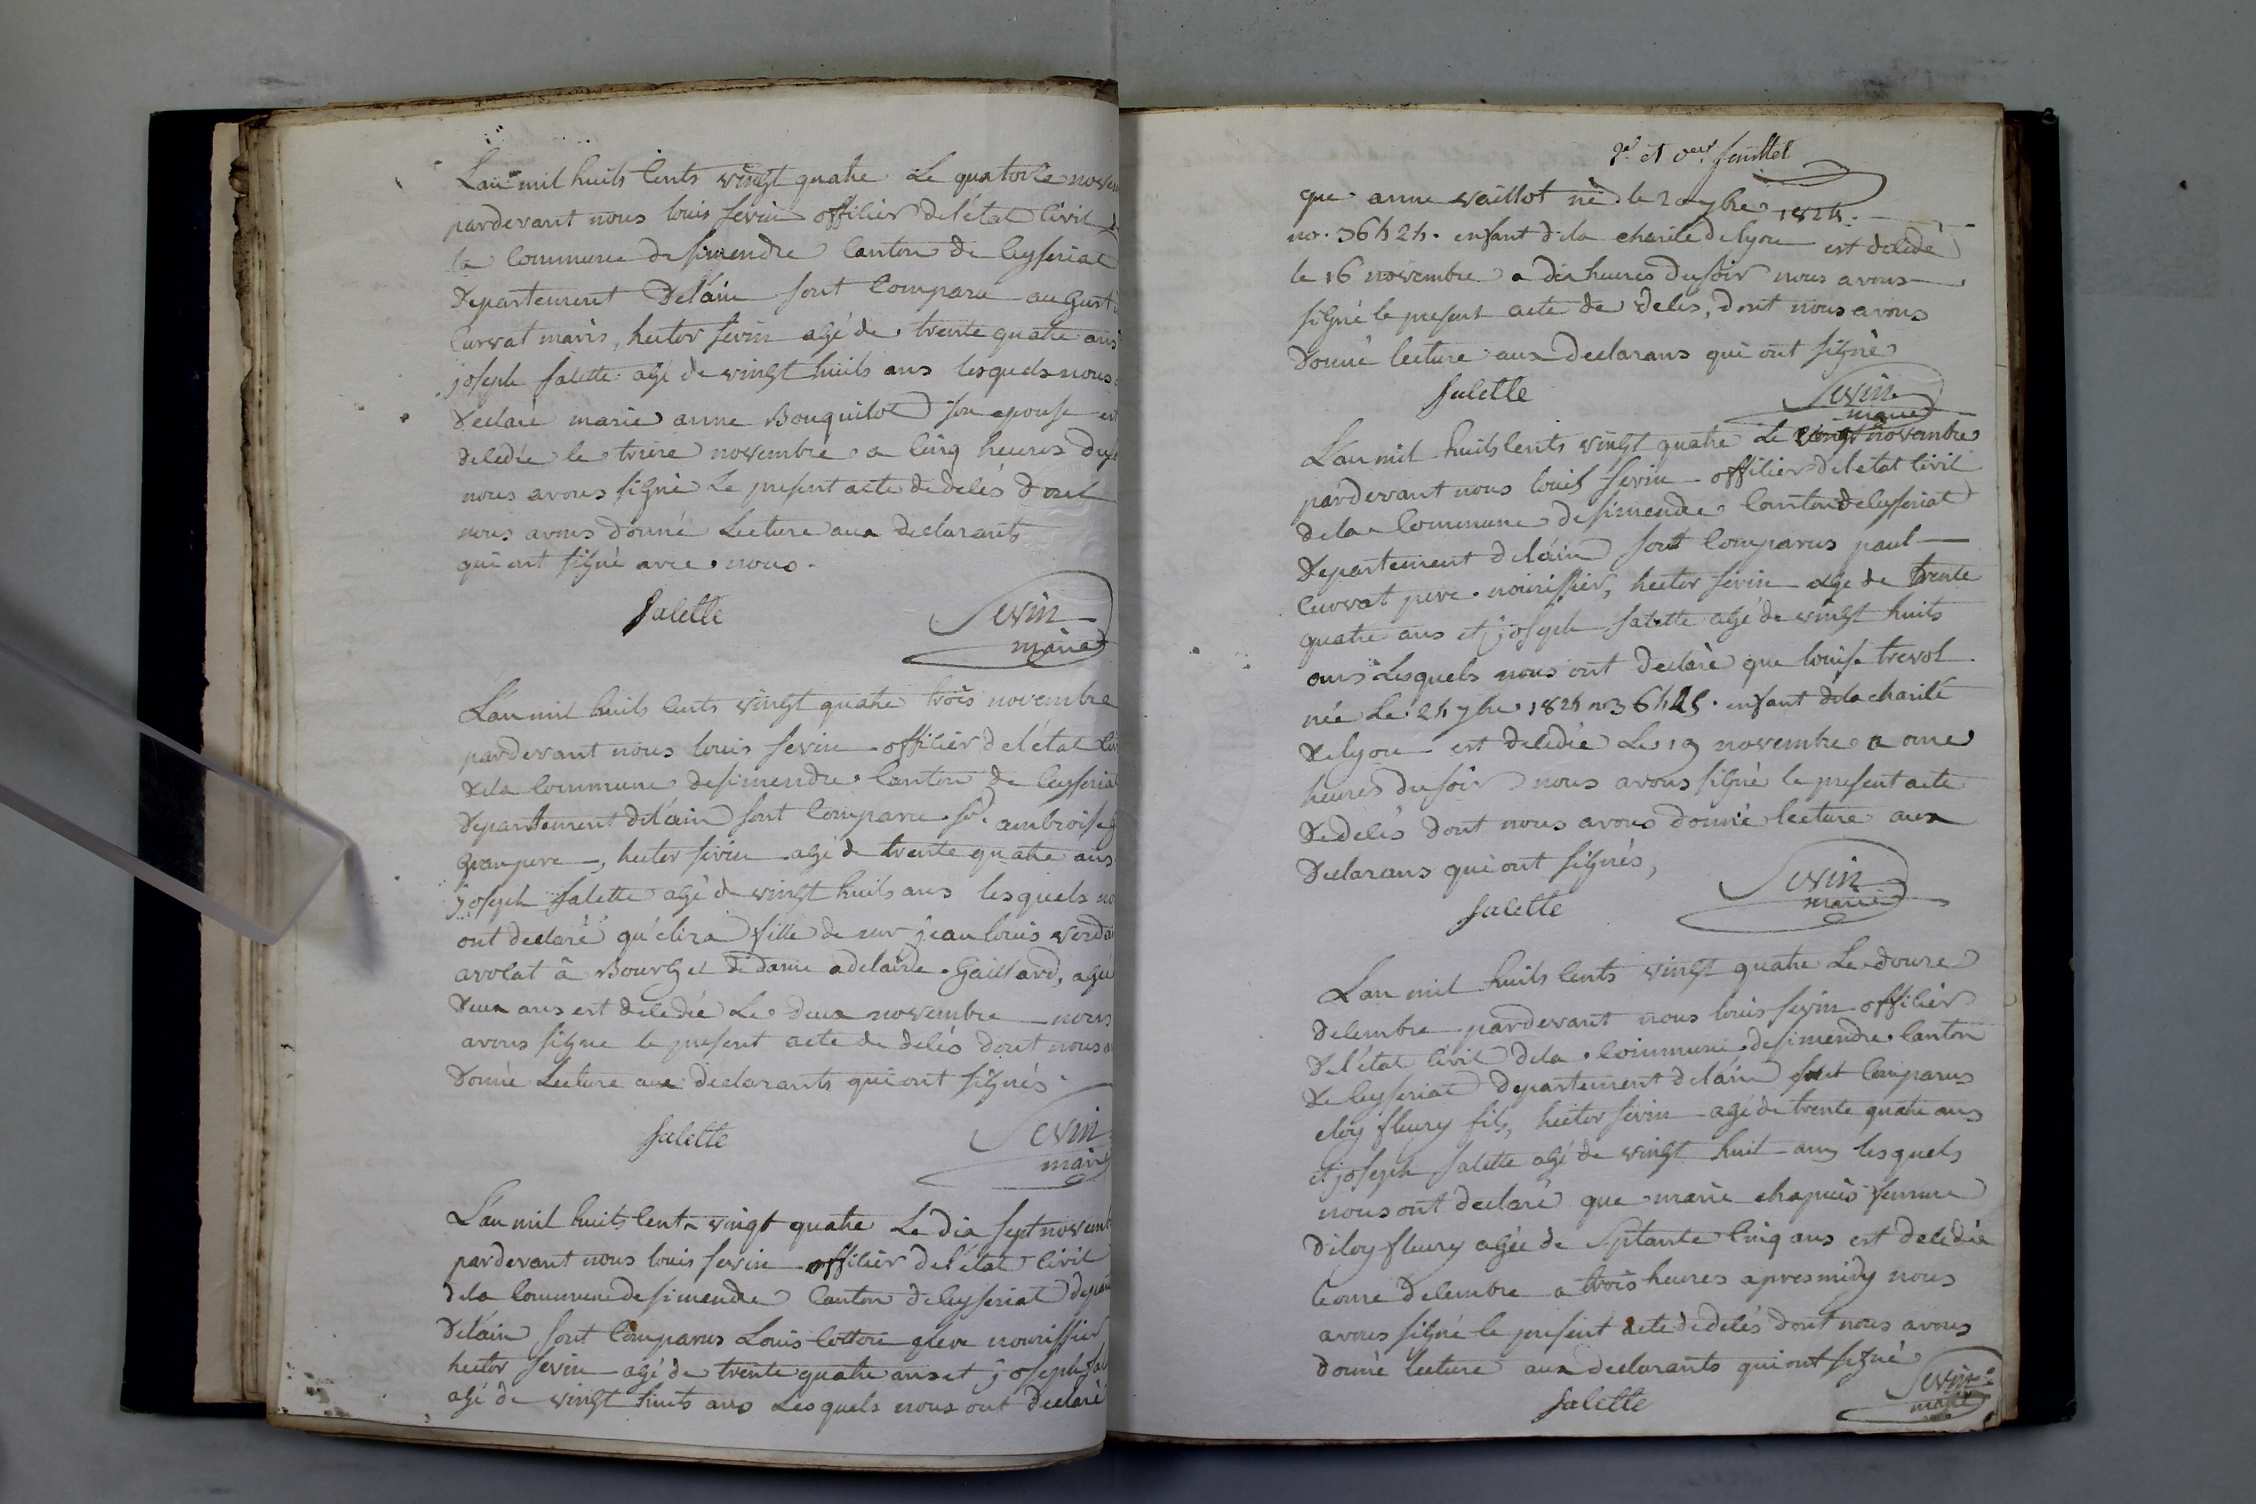 L'an mil huits cents vingt quatre Le quatorze novem
pardevant nous louis sevin officier de l'état civil d
la commune de simendre canton de ceyseriat
Departement Delain sont comparu august
Curvat maris, hector sevin agé de trente quatre ans
joseph salette agé de vingt huits ans lesquels nous
Declaré marie anne Bouquilod son epouse est
decedée le treize novembre a cinq heures du s
nous avons signé Le present acte de decès dont
nous avons donné Lecture aux declarants
qui ont signé avec nous.
Salette Sevin
maire
L'an mil huits cents vingt quatre trois novembre
pardevant nous louis sevin officier de l'état civ
de la commune de simendre canton de ceyseria
Departement de l'ain sont comparu sr. ambroise
Granpere, hector sevin agé de trente quatre ans
joseph salette agé de vingt huits ans lesquels no
ont declaré qu'eliza fille de mr jean louis
avocat à Bourg et de dame adelaïde Gaillard, agée
Deux ans est decedée Le deux novembre nous
avons signe le present acte de decès dont nous a
Donné Lecture aux declarants qui ont signés.
Salette Sevin
maire
L'an mil huits cents vingt quatre Le dix sept novemb
pardevant nous louis sevin officier de l'état civil
de la commune de simendre Canton de Ceyseriat depar
Delain sont comparus Louis cotton pere nourissier
hector sevin agé de trente quatre ans et joseph sal
agé de vingt huits ans Lesquels nous ont declaré
et feuillet
que anne vaillot né le 20 7bre 1824.
no. 36424. enfant de la charité de lyon est décédé
le 16 novembre a dix heures du soir nous avons
signé le present acte de decès, dont nous avons
Donné lecture aux declarans qui ont signé
Salette Sevin
maire
L'an mil huits cents vingt quatre Le vingt novembre
pardevant nous louis sevin officier de l'état civil
de la commune de simendre Canton de ceyseriat
Departement de l'ain sont comparus paul
Curvat pere nourissier, hector sevin age de trente
quatre ans et joseph salette agé de vingt huits
ans Lesquels nous ont declaré que louise trevol
née Le 24 7bre 1824 no 36425. enfant de la charité
de lyon est decedée Le 19 novembre a onze
heures du soir nous avons signé le present acte
De decès dont nous avons donné lecture aux
Declarans qui ont signés,
Salette Sevin
maire
L'an mil huits cents vingt quatre Le douze
Decembre pardevant nous louis sevin officier
De l'état civil de la commune de simendre canton
De ceyseriat departement de l'ain sont comparus
eloy fleury fils, hector sevin agé de trente quatre ans
et joseph salette agé de vingt huit ans lesquels
nous ont declaré que marie chapuis femme
D'eloy fleury agée de septante cinq ans est decedée
le onze decembre a trois heures apres midy nous
avons signé le present acte de decès dont nous avons
donné lecture aux declarants qui ont signé
Salette Sevin
maire